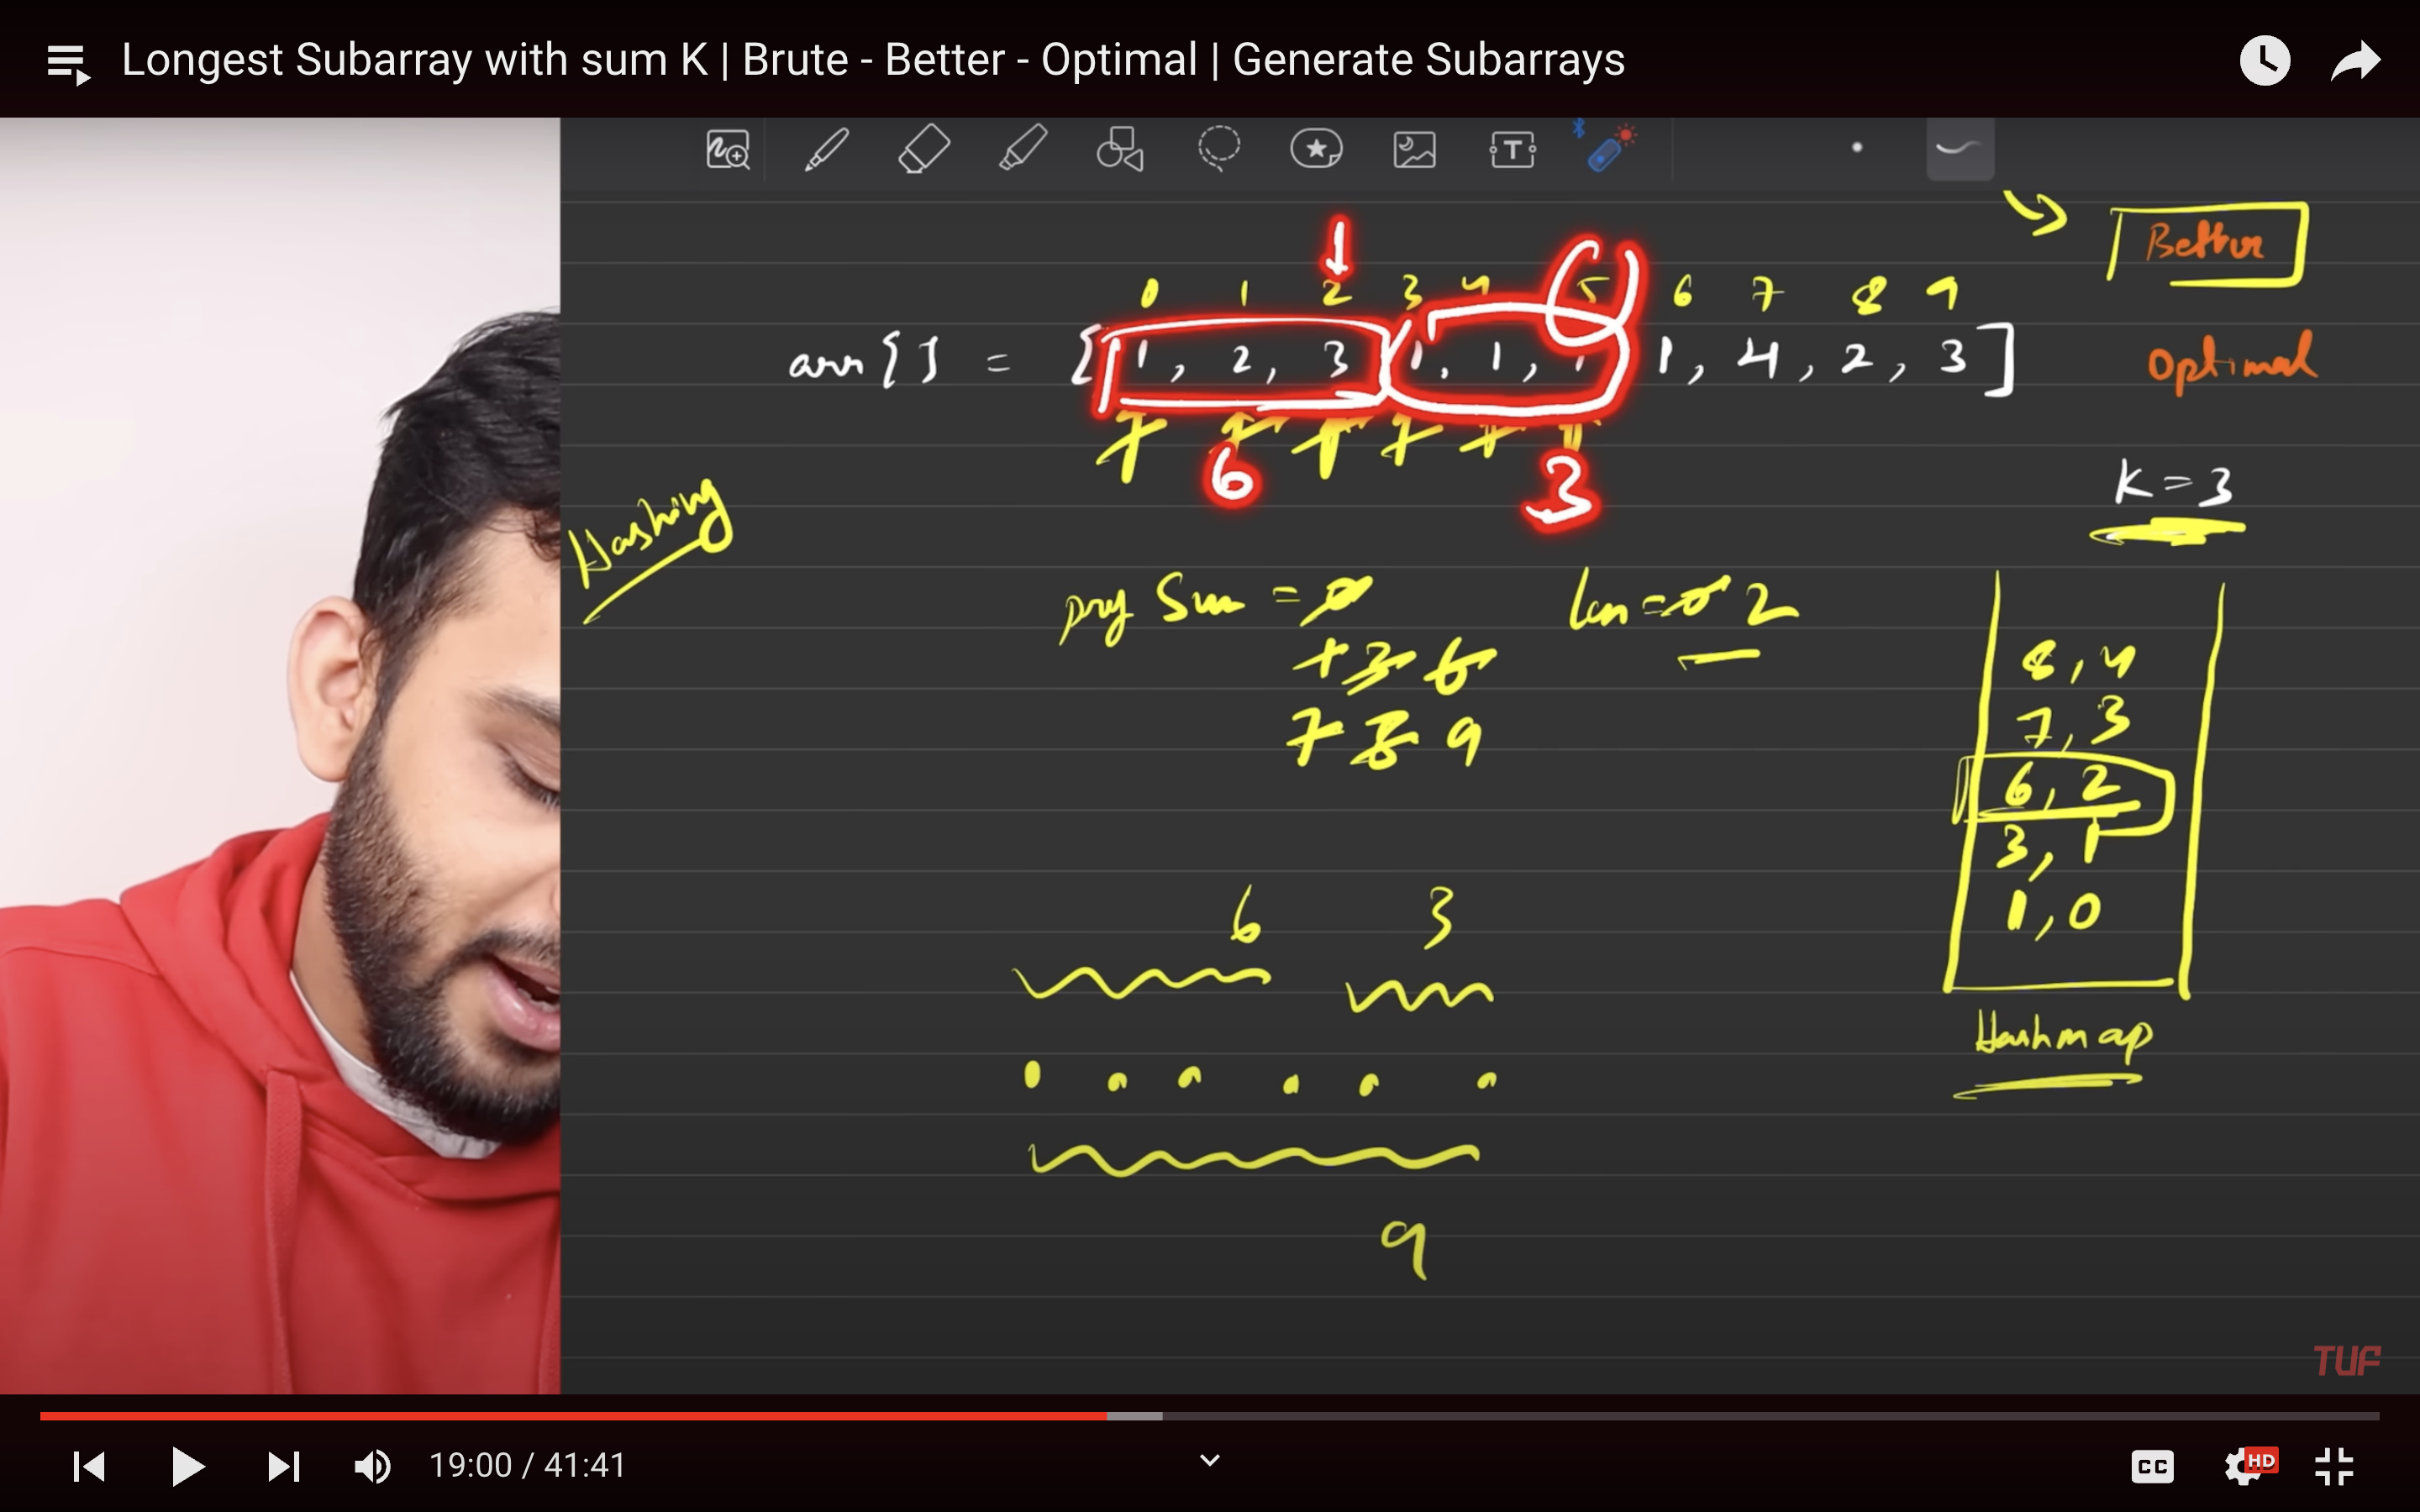 Longest Subarray with sum K | Brute - Better - Optimal | Generate Subarrays
Better
0 1 2 3 4 5 6 7 8 9
arr[] = [1, 2, 3, 1, 1, 1, 1, 4, 2, 3]
Optimal
6
3
K = 3
Hashing
Sum = 0
1 3 6
7 8 9
len = 0 2
8, 4
7, 3
6, 2
3, 1
1, 0
Hashmap
6 3
9
TUF
19:00 / 41:41
CC
HD